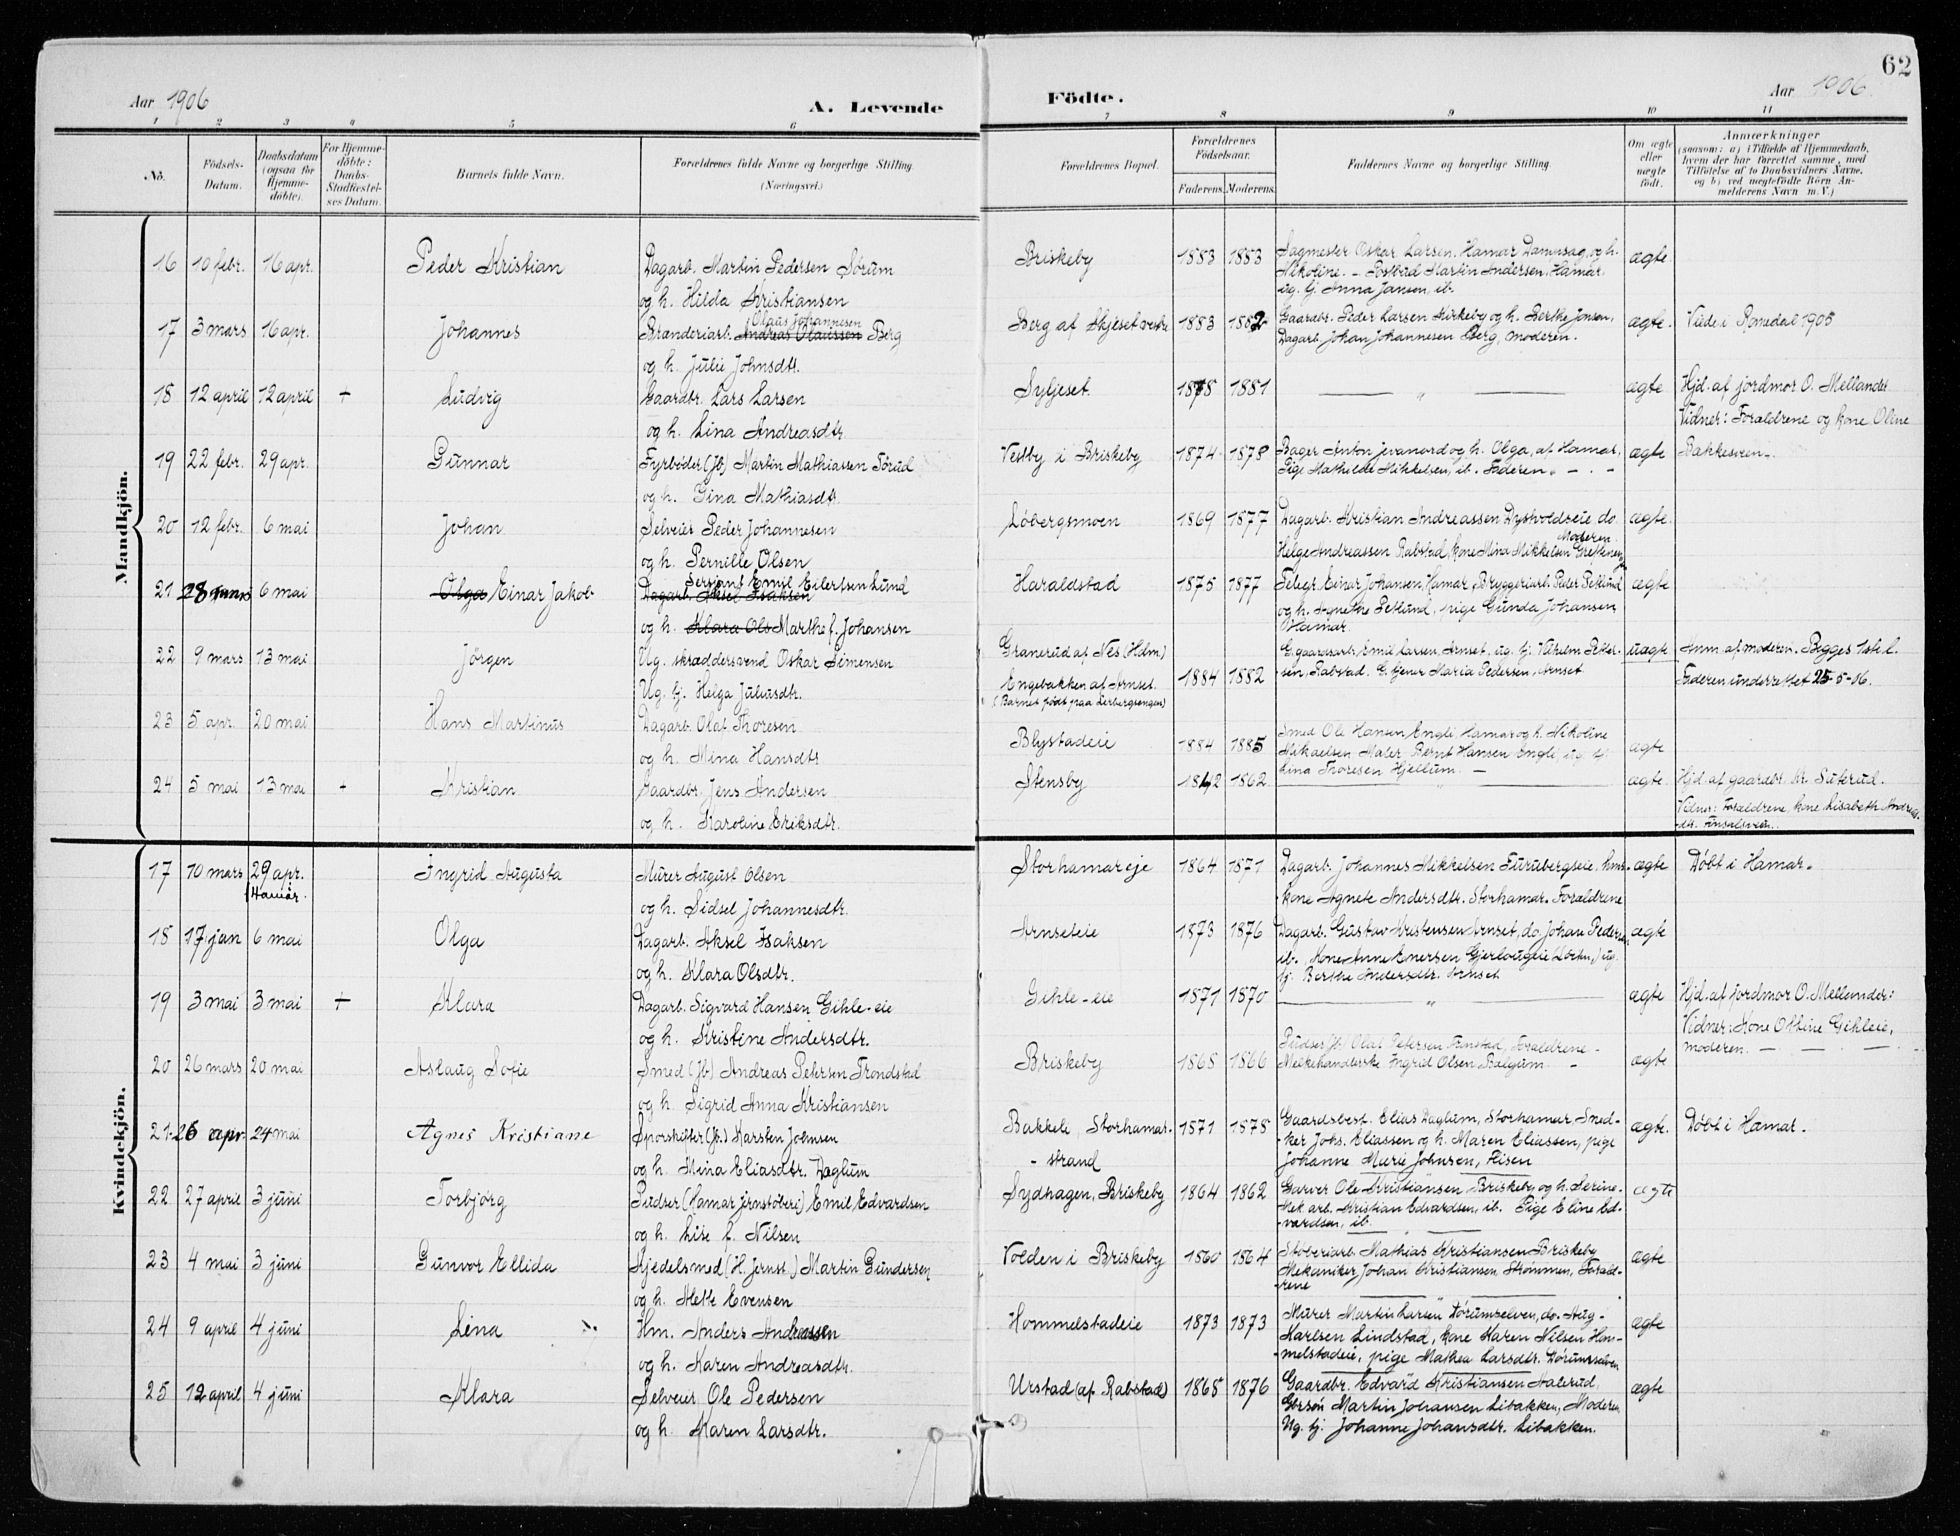 62
Aar 1906
A. Levende
Födte.
Aar 1906.
1 2 3 4 5 6 7 8 9 10 11
No.
Födsels-
Datum.
Daabsdatum
(ogsaa for
Hjemme-
döbte).
For Hjemme-
döbte:
Daabs-
Stadfæstel-
ses Datum.
Barnets fulde Navn.
Forældrenes fulde Navne og borgerlige Stilling.
(Næringsvei.)
Forældrenes Bopæl.
Forældrenes
Födselsaar.
Faderens. Moderens.
Faddernes Navne og borgerlige Stilling.
Om ægte
eller
uægte
födt.
Anmærkninger
(saasom: a) i Tilfælde af Hjemmedaab,
hvem der har forrettet samme, med
Tilföielse af to Daabsvidners Navne,
og b) ved uægtefödte Börn An-
melderens Navn m. V.)
Mandkjön.
16 10 febr. 16 apr. Peder Kristian Dagarb. Martin Pedersen Sörum
og h. Hilda Kristiansen
Briskeby 1883 1883 Sagmester Oskar Larsen, Hamar Dampsag, og h.
Nikoline. – Postbud Martin Andersen, Hamar.
ug. tj. Anna Jansen, ib.
ægte
17 3 mars 16 apr. Johannes Olaus Johannesen
Brænderiarb. Andreas Olaussen Berg
og h. Julie Johnsdtr.
Berg af Skjeset vestre 1883 1882 Gaardbr. Peder Larsen Kirkeby og h. Berthe Jonsen,
Dagarb. Johan Johannesen Berg, moderen.
ægte. Viede i Romedal 1905
18 12 april 12 april + Ludvig Gaardbr. Lars Larsen
og h. Lina Andreasdtr.
1878 1881 " ægte Hjd. af jordmor O. Mellander
Vidner: Forældrene og kone Oline
19 22 febr. 29 apr. Gunnar Fyrböder (Jb) Martin Mathiassen Törud
og h. Gina Mathiasdtr.
Vestby i Briskeby 1874 1878 Bager Anton Jevanord og h. Olga, af Hamar,
Pige Mathilde Mikkelsen, ib. Faderen.
ægte
20 12 febr. 6 mai Johan Selveier Peder Johannesen
og h. Pernille Olsen
Löbergsmoen 1869 1877 Dagarb. Kristian Andreassen Dystvoldseie, do.
Moderen.
Helge Andreassen Rabstad, kone Mina Mikkelsen
ægte.
21 28 mars 6 mai Olga Einar Jakob Sersjant Emil Eilertsen Lund
Dagarb. Aksel Isaksen
og h. Klara Ols Marthe f. Johansen
Haraldstad 1875 1877 Telegr. Einar Johansen, Hamar, Bryggeriarb. Peder Petlund
og h. Agnethe Petlund, pige Gunda Johansen
Hamar.
ægte
22 9 mars 13 mai Jörgen Ug. skræddersvend Oskar Simensen
Ug. tj. Helga Juliusdtr.
Granerud af Nes (Hdm)
Engebakken af Arnset.
(Barnet födt paa Lerbergsengen)
1884 1882 G.gaardsarb. Emil Larsen, Arnset, ug. tj. Vilhelm Peter-
sen, Rabstad. G. tjener Maria Pedersen, Arnset
uægte Anm. af moderen. Begges 1ste l.
Faderen underrettet 25-5-06.
23 5 apr. 20 mai Hans Martinus Dagarb. Olaf Thoresen
og h. Mina Hansdtr.
Blystadeie 1884 1885 Smed Ole Hansen Engli, Hamar og h. Nikoline
Mikaelsen, Maler Bernt Hansen Engli, ug. tj.
Lina Thoresen Hjellum. –
ægte
24 5 mai 13 mai + Kristian Gaardbr. Jens Andersen
og h. Karoline Eriksdtr.
Stensby 1862 " ægte. Hjd. af gaardbr. Kr. Suterud.
Vidner: Forældrene, kone Lisabeth Andreas-
dtr.
Kvindekjön.
17 10 mars 29 apr.
Hamar.
Ingrid Augusta Murer August Olsen
og h. Sidsel Johannesdtr.
Storhamareje 1864 1871 Dagarb. Johannes Mikkelsen Furubergseie,
kone Agnete Andersdtr. Storhamar. Forældrene
ægte Döbt i Hamar.
18 17 jan 6 mai Olga Dagarb. Aksel Isaksen
og h. Klara Olsdtr.
Arnseteie 1873 1876 Dagarb. Gustav Kristensen Arnset, do. Johan Pedersen
ib., Kone Anne Enersen Gjerlougeie (Löten,) ug.
tj. Berthe Andersdtr. Arnset
ægte
19 3 mai 3 mai + Klara Dagarb. Sigvard Hansen Gihle-eie
og h. Kristine Andersdtr.
Gihle-eie 1871 1870 " ægte Hjd. af jordmor O. Mellander:
Vidner: Kone Oline Gihleie,
moderen.
20 26 mars 20 mai Aslaug Sofie Smed (Jb) Andreas Petersen Trondstad
og h. Sigrid Anna Kristiansen
Briskeby 1868 1866 Pudser (Jb) Olaf Petersen Funstad, Forældrene –
Melkehandlerske Ingrid Olsen
ægte
21 26 apr. 24 mai Agnes Kristiane Sporskifter (Jb.) Karsten Johnsen
og h. Mina Eliasdtr. Daglum
Bakkeli, Storhamar-
-strand
1871 1878 Gaardsbest. Elias Daglum, Storhamar Sned-
-ker Johs. Eliassen og h. Maren Eliassen, pige
Johanne Marie Johnsen,
ægte. Döbt i Hamar.
22 27 april 3 juni Torbjörg Pudser (Hamar jernstöberi) Emil Edvardsen
og h. Lise f. Nilsen
Sydhagen, Briskeby 1864 1862 Garver Ole Kristiansen Briskeby og h. Serine.
Mek.arb. Kristian Edvardsen, ib. Pige Eline Ed-
-vardsen, ib.
ægte
23 4 mai 3 juni Gunvor Ellida Kjedelsmed (H. Jernst.) Martin Gundersen
og h. Mette Evensen
Volden i Briskeby 1860 1864 Stöberiarb. Mathias Kristiansen Briskeby
Mekaniker Johan Kristiansen, Strömmen, Foræld-
rene
ægte
24 9 april 4 juni Lina Hm. Anders Andreassen
og h. Karen Andreasdtr.
Hommelstadeie 1873 1873 Murer Martin Larsen Dörumselven, do. Aug.
Karlsen Lindstad, kone Karen Nilsen Hom-
-melstadeie, pige Mathea Larsdtr. Dörumselven
ægte
25 12 april 4 juni Klara Selveier Ole Pedersen
og h. Maren Larsdtr.
Urstad (af Rabstad) 1865 1876 Gaardbr. Edvard Kristiansen
Grsön Martin Johansen Libakken, Moderen
Ug. tj. Johanne Johansdtr. Libakken.
ægte